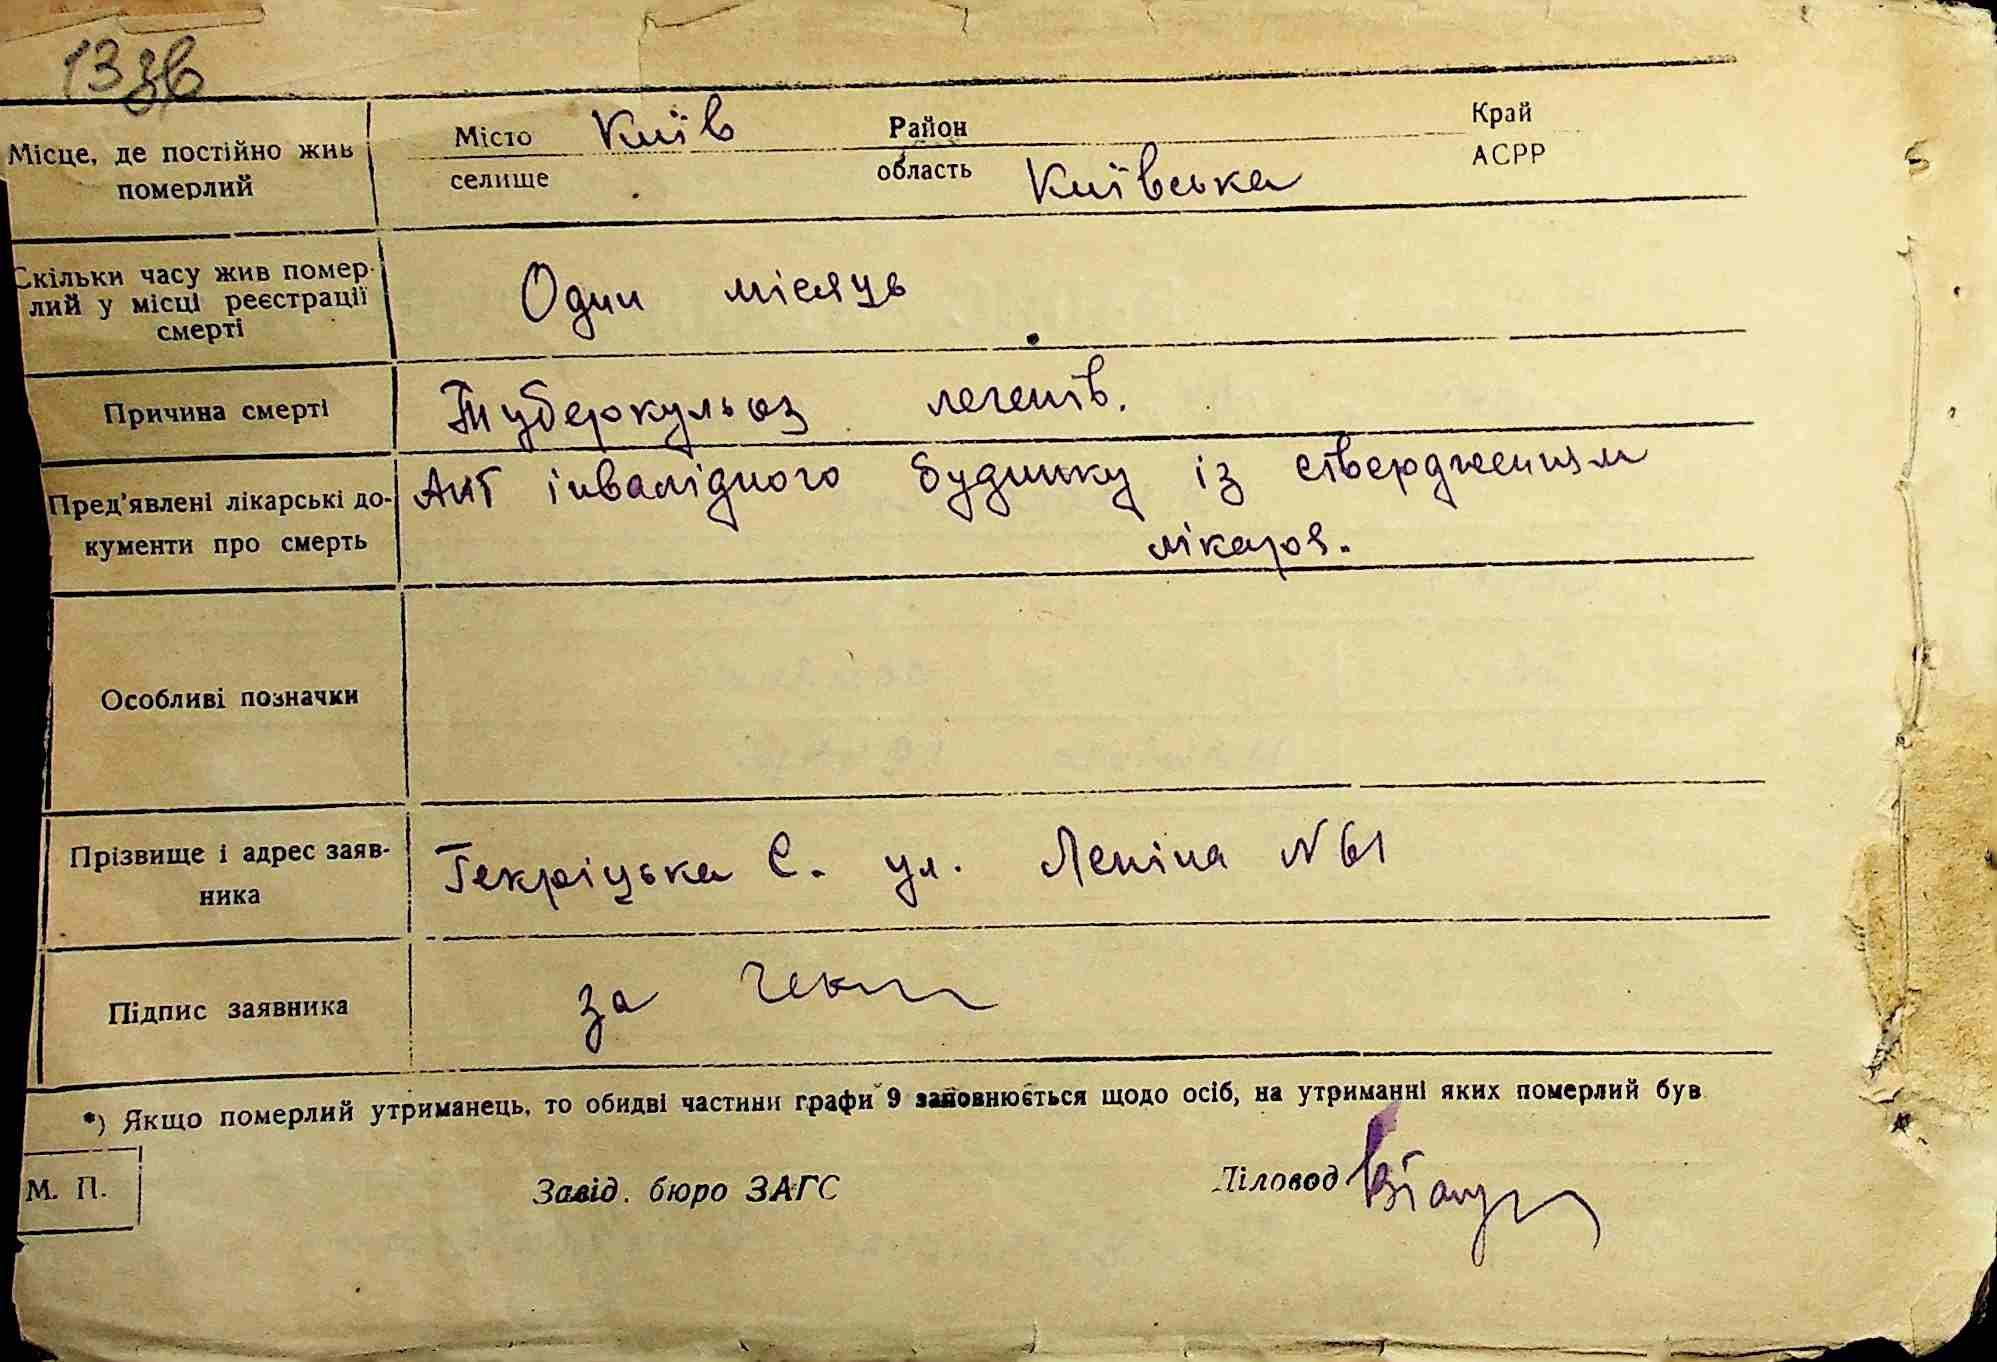 13 зв
Місце, де постійно жив
померлий
Місто Київ Район Край
селище область Київська АСРР
Скільки часу жив помер-
лий у місці реєстрації
смерті
Один місяць
Причина смерті
Туберкульоз легенів.
Пред'явлені лікарські до-
кументи про смерть
Акт інвалідного будинку із ствердженням
лікаря.
Особливі позначки
Прізвище і адрес заяв-
ника
С. ул. Леніна N 61
Підпис заявника
за
*) Якщо померлий утриманець, то обидві частини графи 9 заповнюється щодо осіб, на утриманні яких померлий був
М. П.
Завід. бюро ЗАГС
Діловод